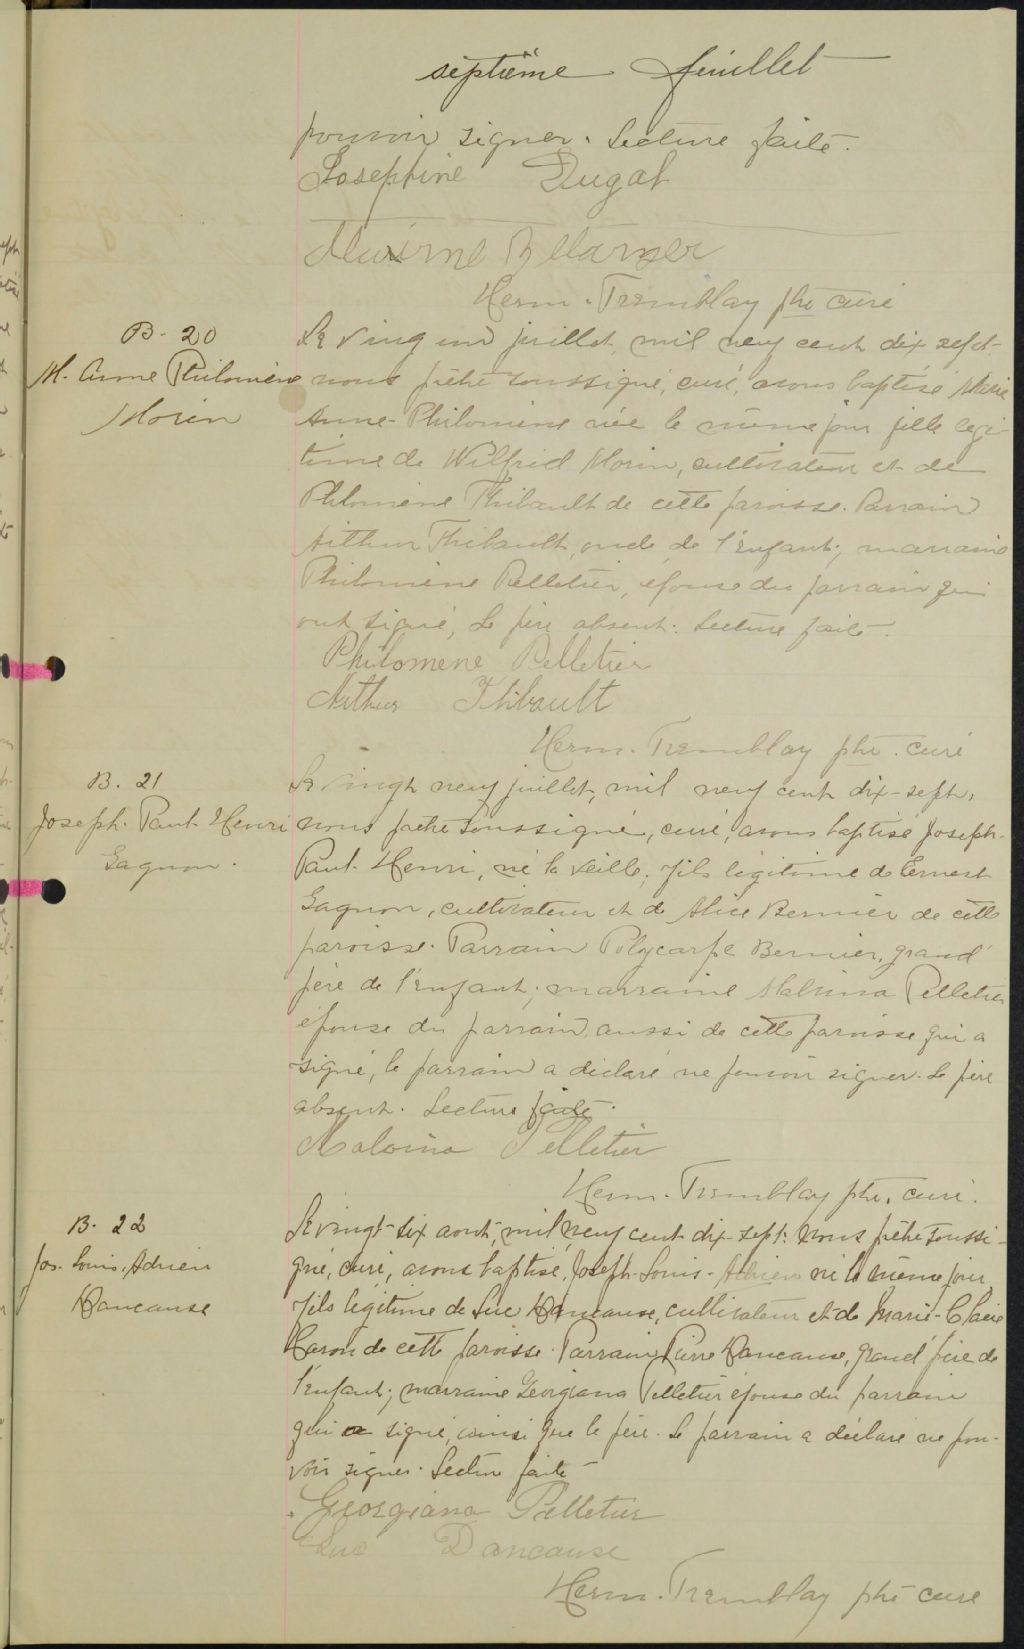 septième feuillet
pouvoir signer. Lecture faite.
Josephine Dugal
Herm. Tremblay ptre curé
B. 20
M. Anne Philomène
Morin
Le vingt un juillet, mil neuf cent dix sept,
nous prêtre soussigné, curé, avons baptisé Marie
Anne-Philomène née le même jour fille legi-
time de Wilfrid Morin, cultivateur et de
Philomène Thibault de cette paroisse. Parrain
Arthur Thibault, oncle de l'enfant; marraine
Philomène Pelletier, épouse du parrain qui
ont signé, le père absent. Lecture faite.
Philomene Pelletier
Arthur Thibault
Herm. Tremblay ptre. curé
B. 21
Joseph. Paul. Henri
Gagnon.
Le vingt neuf juillet, mil neuf cent dix-sept,
nous prêtre soussigné, curé, avons baptisé Joseph-
Paul. Henri, né la veille, fils légitime de Ernest
Gagnon, cultivateur et de Alice Bernier de cette
paroisse. Parrain Polycarpe Bernier, grand
père de l'enfant; marraine Malvina Pelletier
épouse du parrain, aussi de cette paroisse qui a
signé, le parrain a déclaré ne pouvoir signer. Le père
absent. Lecture faite.
Malvina Pelletier
Herm. Tremblay ptre. curé.
B. 22
Jos. Louis. Adrien
Dancause
Le vingt-six août, mil neuf cent dix-sept. Nous prêtre soussi-
gné, curé, avons baptisé, Joseph-Louis-Adrien né le même jour
fils légitime de Luc Dancause, cultivateur et de Marie-Claire
Caron de cette paroisse. Parrain Pierre Dancause, grand père de
l'enfant; marraine Georgiana Pelletier épouse du parrain
qui a signé, ainsi que le père. Le parrain a déclaré ne pou-
voir signer. Lecture faite
Georgiana Pelletier
Luc Dancause
Herm. Tremblay ptre curé